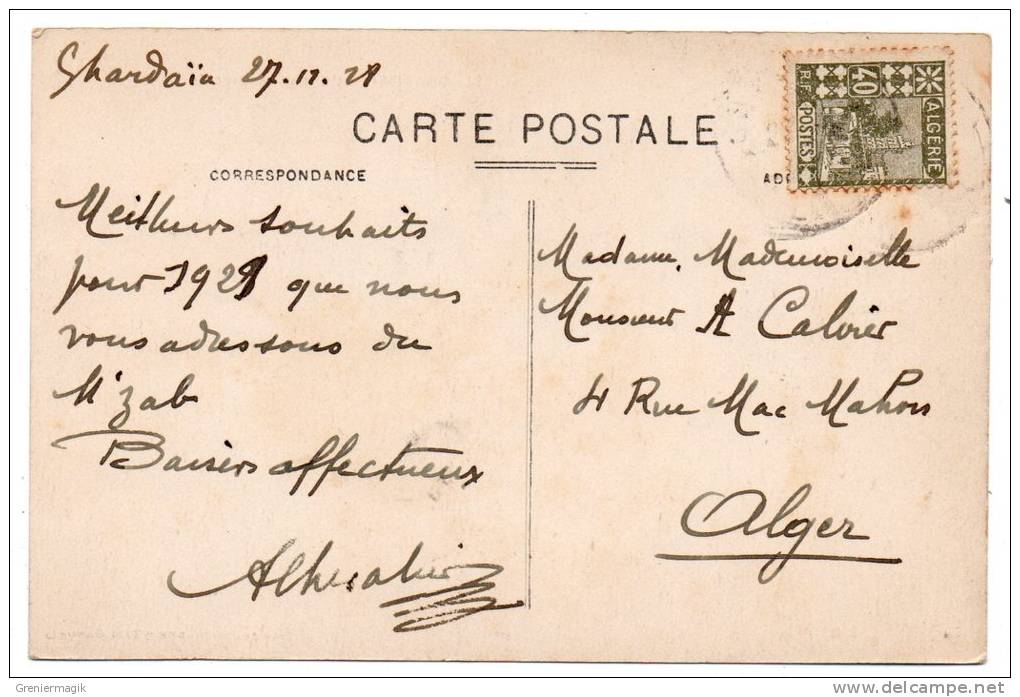 Ghardaïa 27.12.28
CARTE POSTALE
CORRESPONDANCE
R.F. POSTES
40
ALGÉRIE
Meilleurs souhaits
pour 1929 que nous
vous adressons du
M'zab
Baisers affectueux
Madame, Mademoiselle
Monsieur A Calvier
4 Rue Mac Mahon
Alger
Greniermagik
delcampe.net